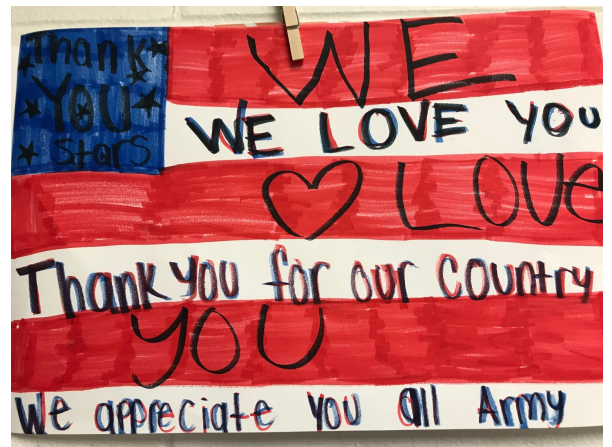 Thank
YOU
Stars
WE
WE LOVE YOU
LOVE
Thank you for our country
YOU
We appreciate you all Army